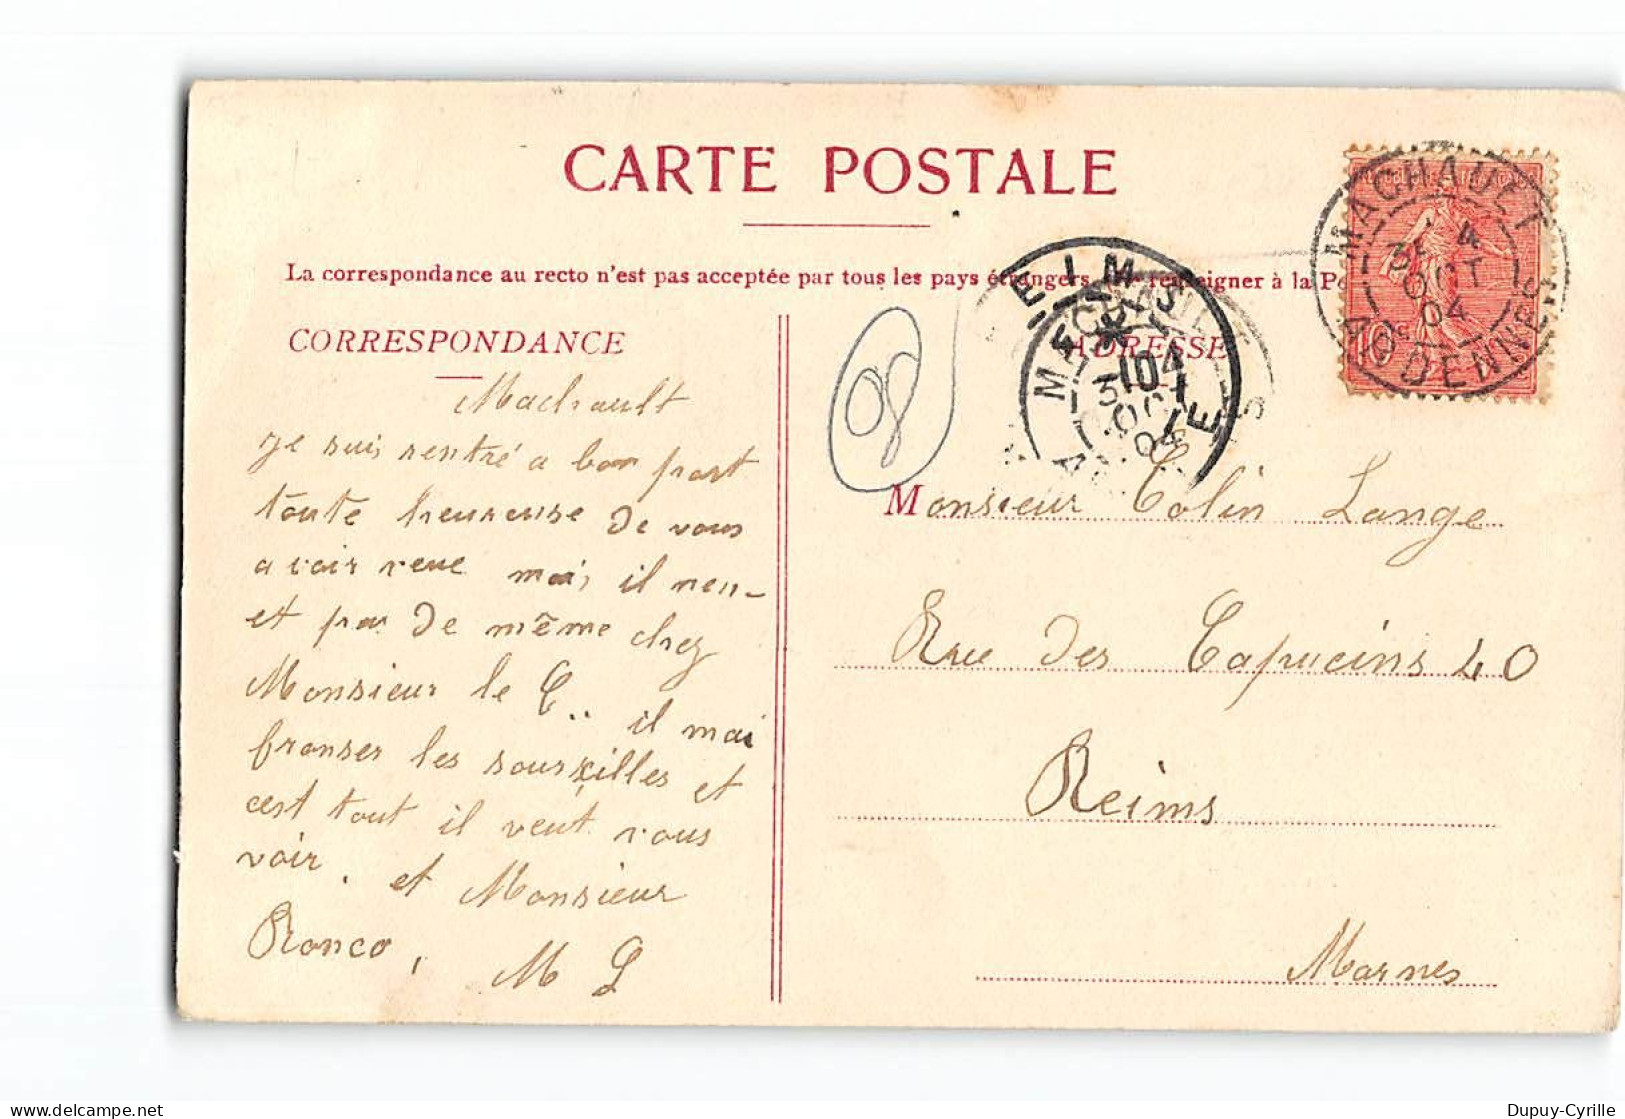 CARTE POSTALE
La correspondance au recto n'est pas acceptée par tous les pays étrangers seigner à la
CORRESPONDANCE
Machault
je suis rentré a bon port
toute heureuse de vous
avoir veue mais il nen-
et pas de même chez
Monsieur le C.. il mai
fronser les soursilles et
cest tout il veut vous
voir. et Monsieur
Ronco,
M L
08
ADRESSE
Monsieur Colin Lange
Rue des Capucins 40
Reims
Marnes
MACHAULT
OCT
04
ARDENNES
10
MACHAULT
04
Dupuy-Cyrille